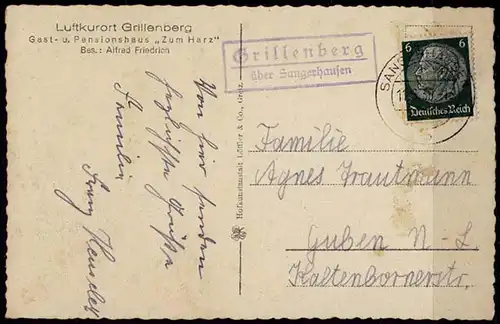 Luftkurort Grillenberg
Gast- u. Pensionshaus „Zum Harz"
Bes.: Alfred Friedrich
Grillenberg
über Sangerhausen
6 6
Deutsches Reich
SANGERHAUSEN
Von hier senden
herzlichste Grüße
Familie
Franz
Hofkunstanstalt Löffler & Co., Greiz
Familie
Agnes Trautmann
Guben N-L.
Kaltenbornerstr.